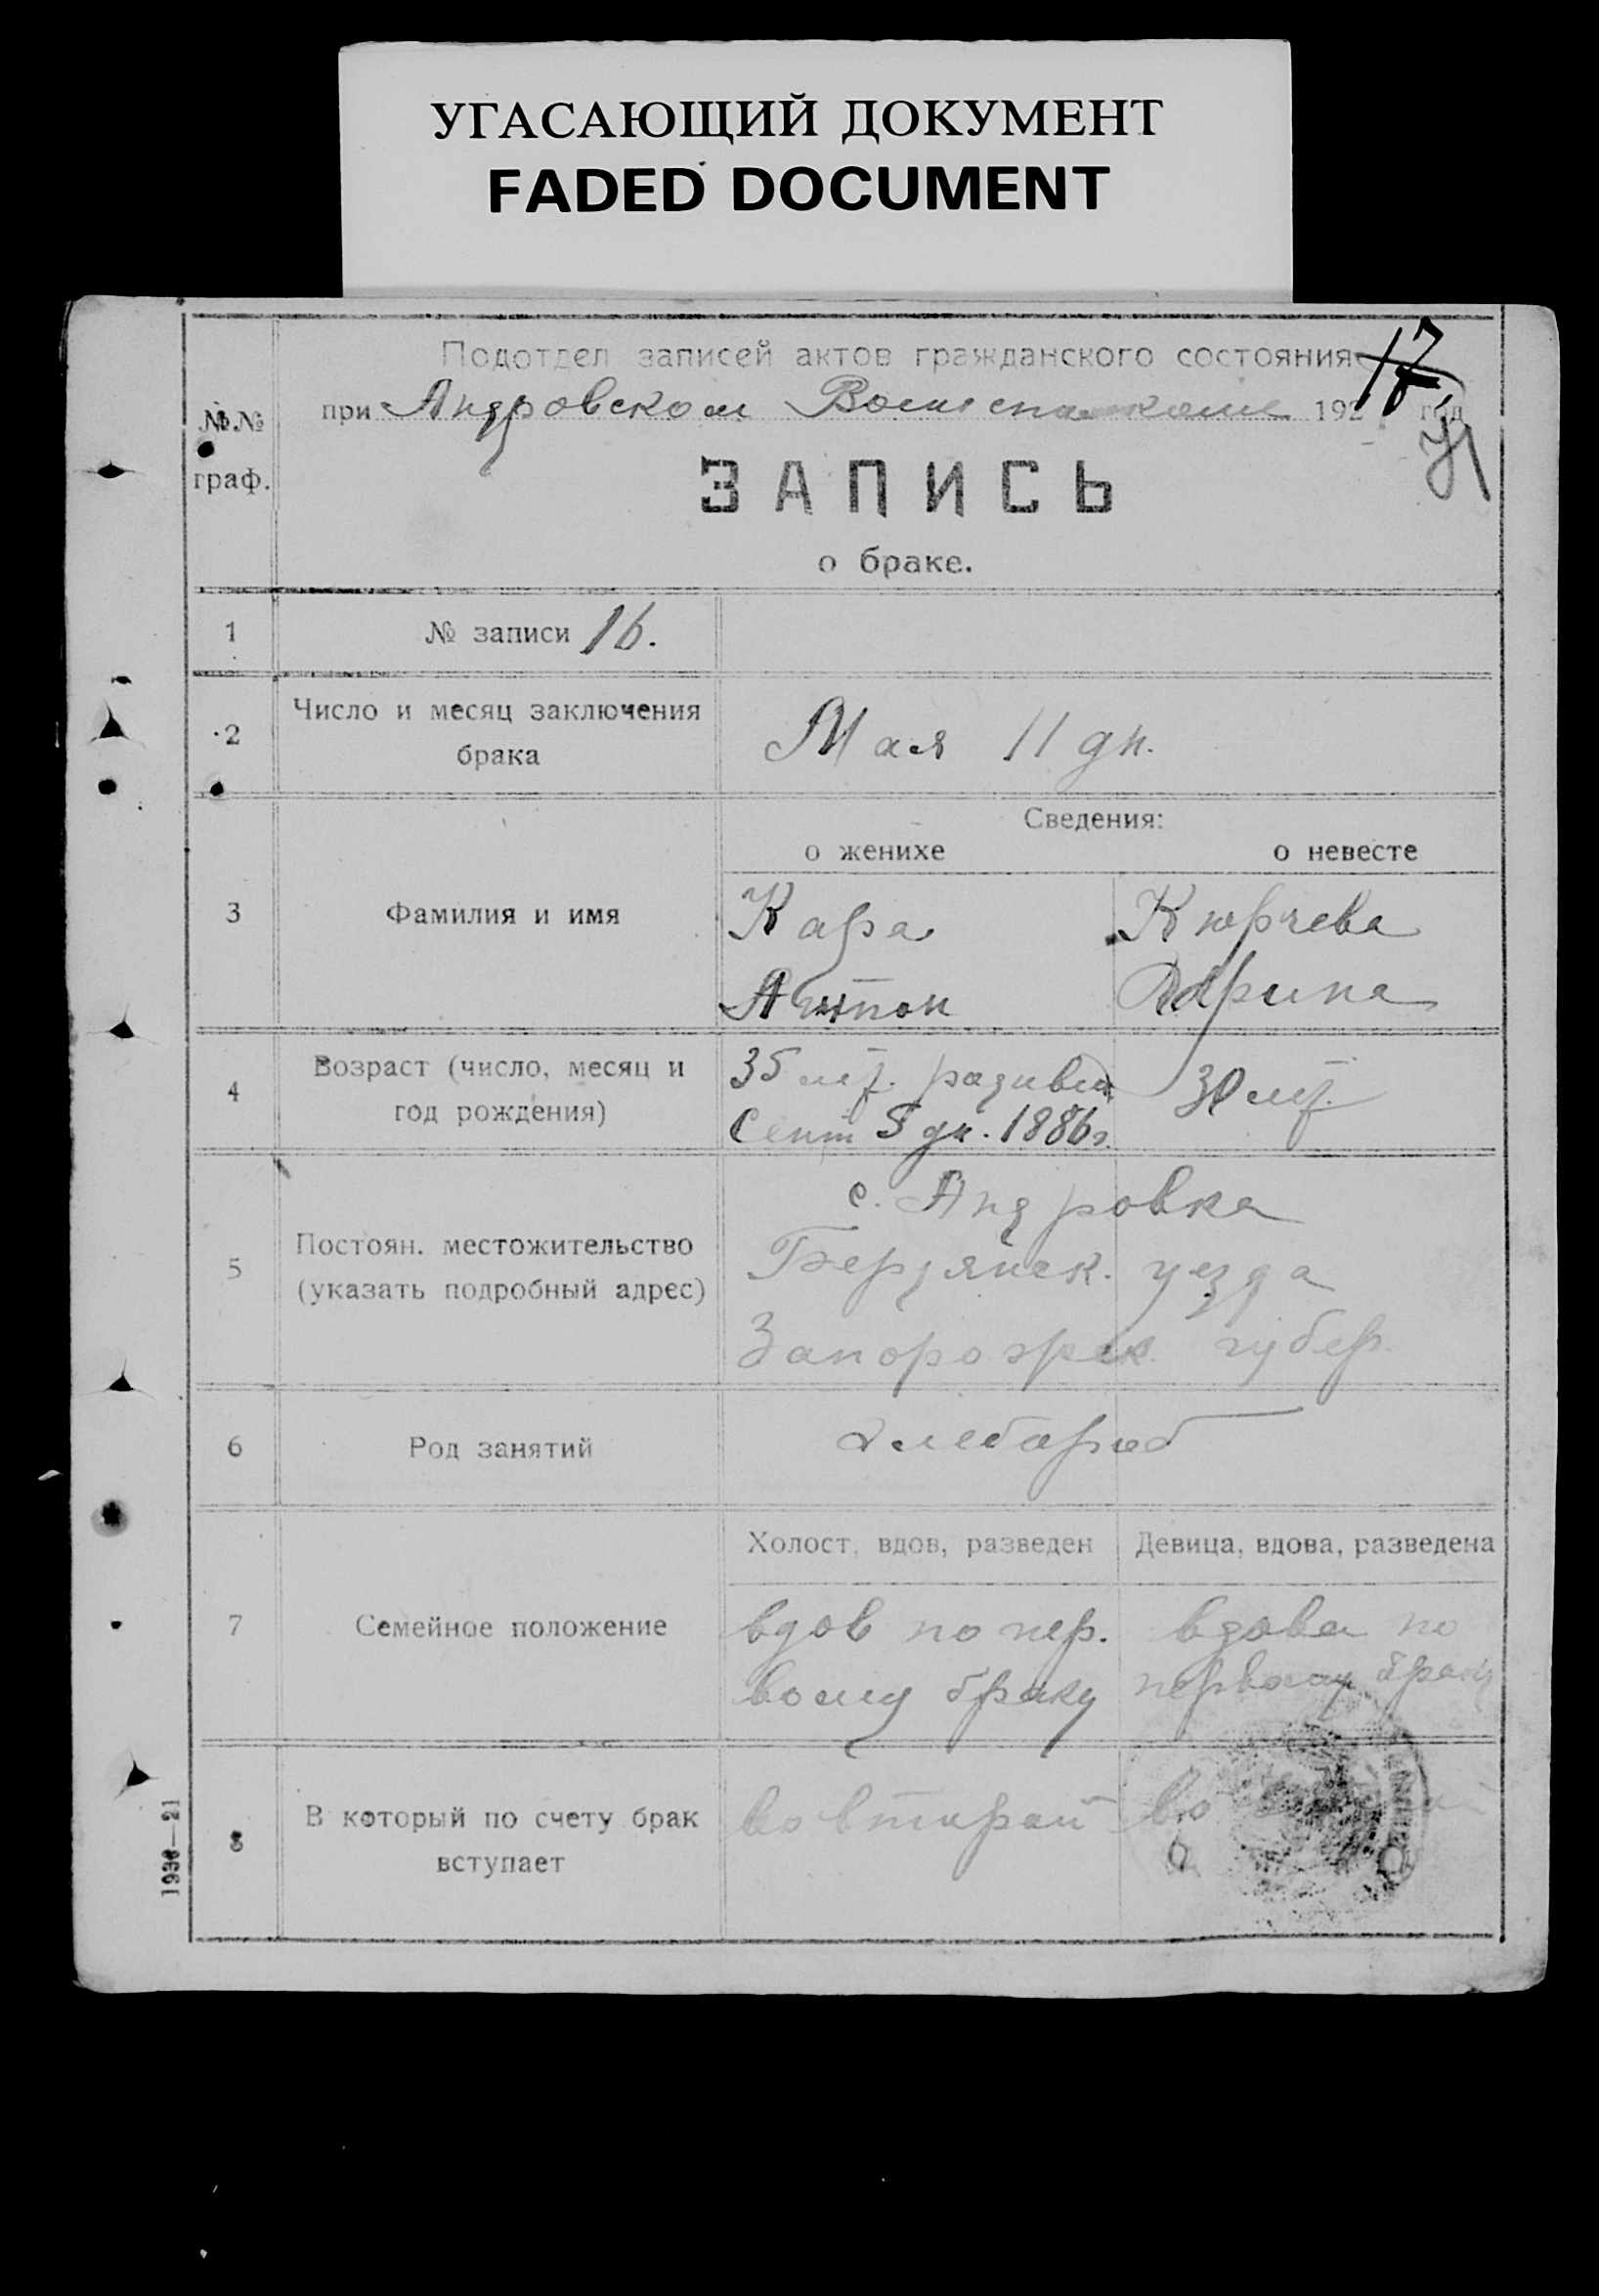 УГАСАЮЩИЙ ДОКУМЕНТ
FADED DOCUMENT
Подотдел записей актов гражданского состояния
при Андровском 192 год
№№
граф.
ЗАПИСЬ
о браке.
1 № записи 16.
2 Число и месяц заключения
брака
Мая 11 дн.
Сведения:
о женихе о невесте
3 Фамилия и имя
Кара Кюрчева
Антон
4 Возраст (число, месяц и
год рождения)
35 лет. 30 лет.
Сент 5 дн. 1886 г.
5 Постоян. местожительство
(указать подробный адрес)
с. Андровка
Бердянск. уезда
Запорожск. губер.
6 Род занятий
хлебороб
Холост, вдов, разведен Девица, вдова, разведена
7 Семейное положение
вдов по пер. вдова по
вому браку первому браку
8 В который по счету брак
вступает
во второй во